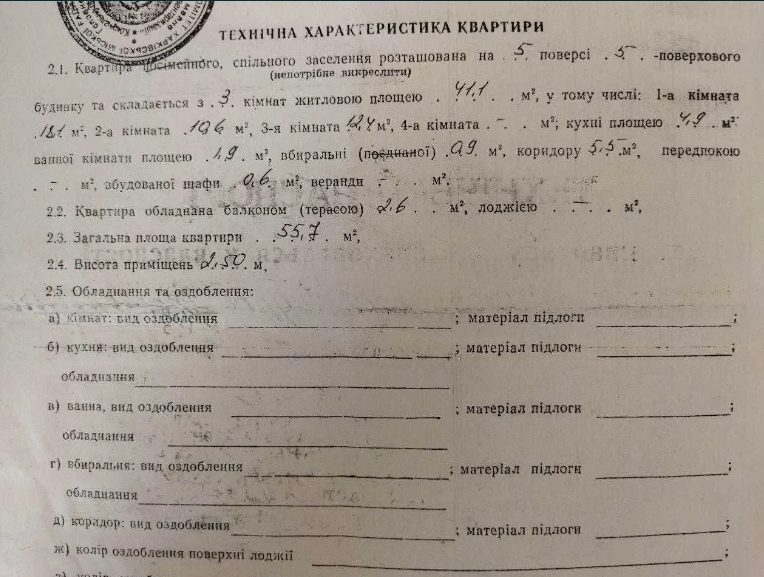 ТЕХНІЧНА ХАРАКТЕРИСТИКА КВАРТИРИ
2.1. Квартира посімейного, спільного заселення розташована на 5 поверсі 5 -поверхового
(непотрібне викреслити)
будинку та складається з 3 кімнат житловою площею 41,1 м², у тому числі: 1-а кімната
18,1 м², 2-а кімната 10,6 м², 3-я кімната 12,4 м², 4-а кімната - м²; кухні площею 4,9 м²
ванної кімнати площею 1,9 м², вбиральні (поєднаної) 0,9 м², коридору 5,5 м², передпокою
- м², збудованої шафи 0,6 м², веранди - м².
2.2. Квартира обладнана балконом (терасою) 2,6 м², лоджією - м²,
2.3. Загальна площа квартири 55,7 м²,
2.4. Висота приміщень 2,50 м,
2.5. Обладнання та оздоблення:
а) кімнат: вид оздоблення ; матеріал підлоги ;
б) кухня: вид оздоблення ; матеріал підлоги ;
обладнання
в) ванна, вид оздоблення ; матеріал підлоги ;
обладнання
г) вбиральня: вид оздоблення ; матеріал підлоги ;
обладнання
д) коридор: вид оздоблення ; матеріал підлоги ;
ж) колір оздоблення поверхні лоджії ;